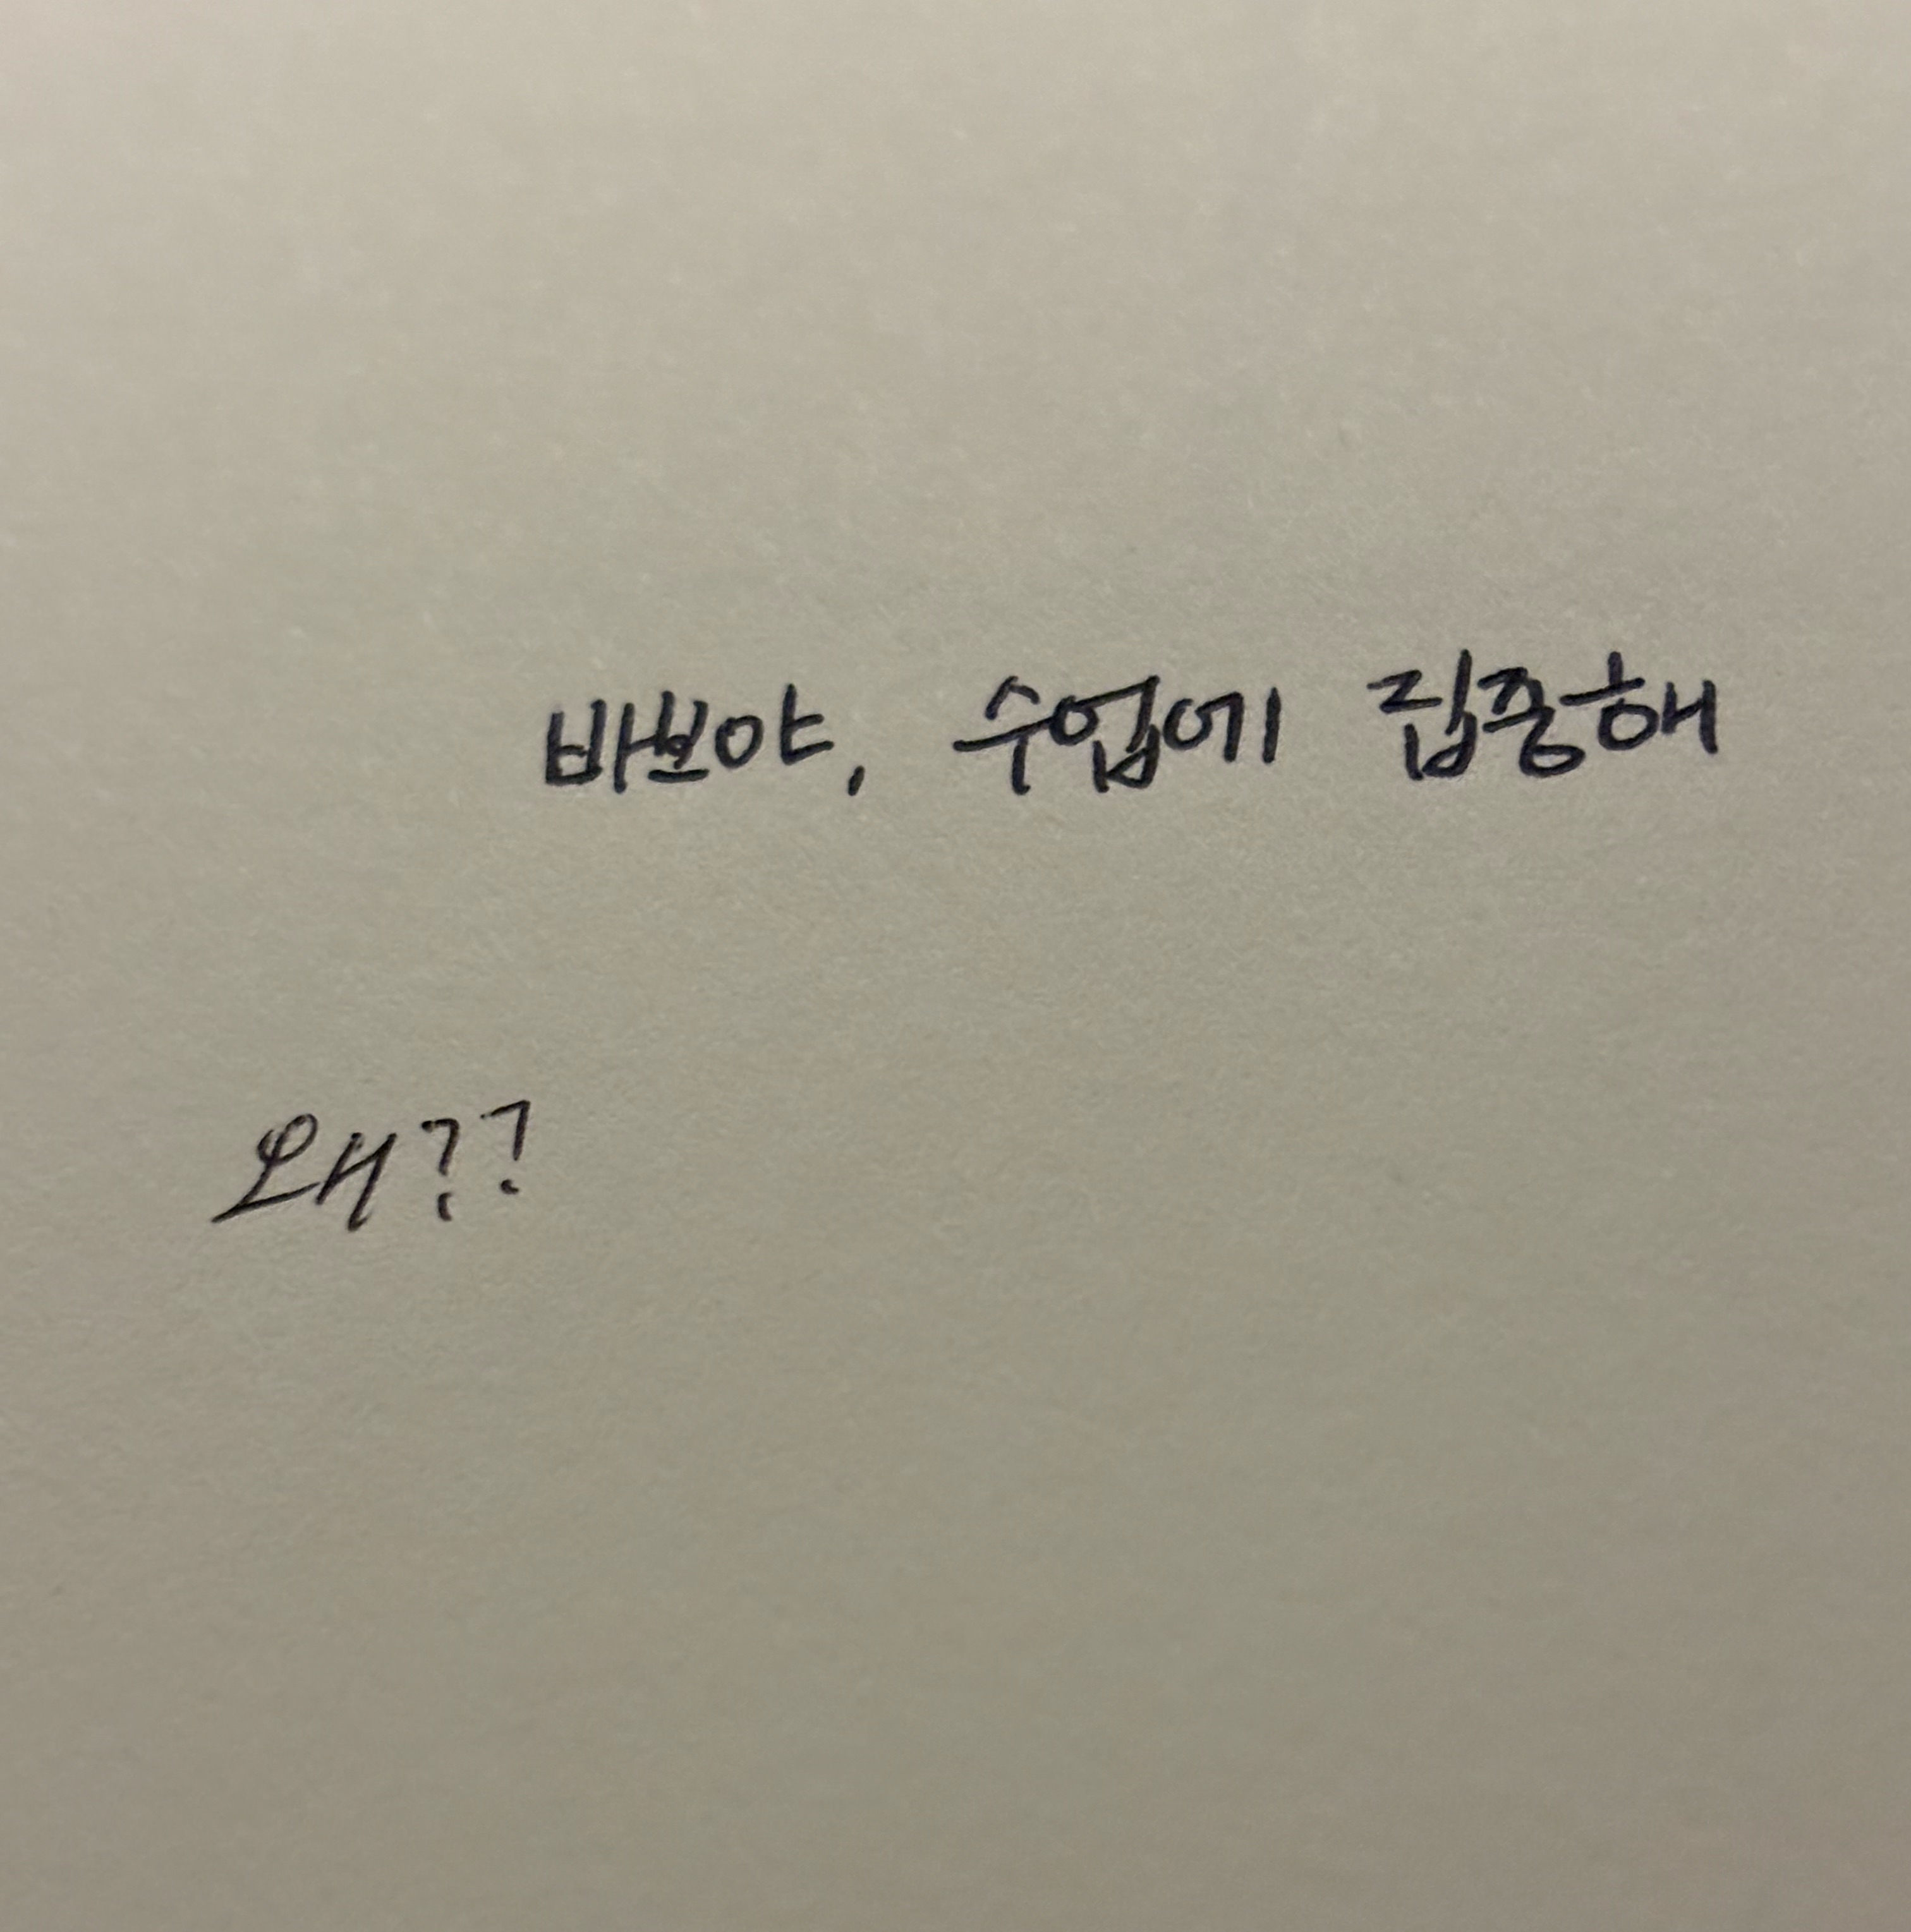 바보야, 수업에 집중해
왜??